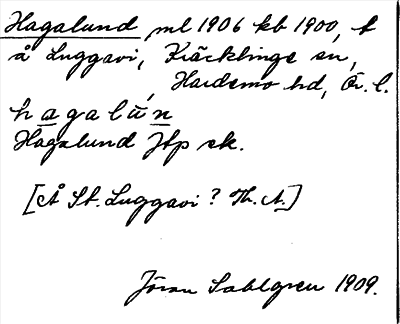 Hagalund, ml 1906 kb 1900, t
å Luggavi, Kräcklinge sn,
Hardemo hd, Ör. l.
hagalu̇́n
Hagalund Jtp sk.
[Å St. Luggavi? Th. A.]
Jöran Sahlgren 1909.